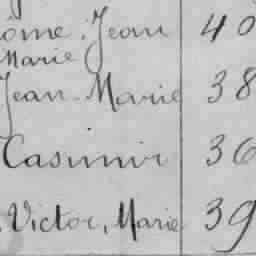 ôme. Jean 40
Marie
Jean-Marie 38
Casimir 36
Victor, Marie 39